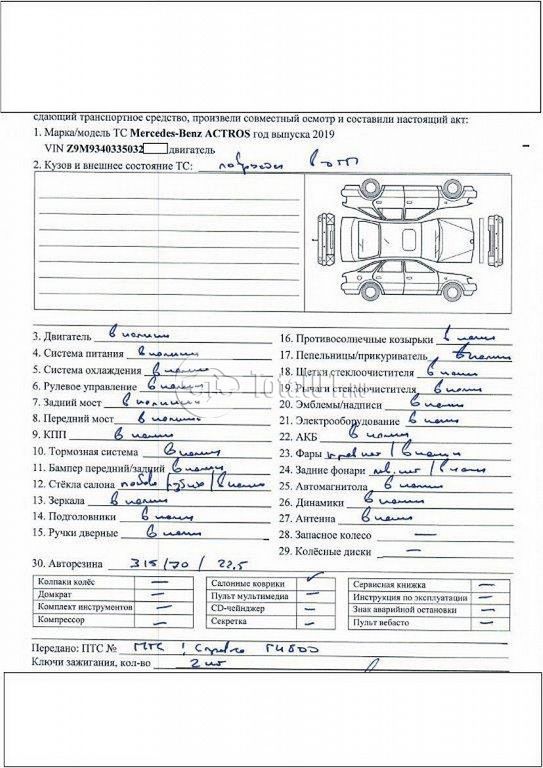 сдающий транспортное средство, произвели совместный осмотр и составили настоящий акт:
1. Марка/модель ТС Mercedes-Benz ACTROS год выпуска 2019
VIN Z9M9340335032 двигатель
2. Кузов и внешнее состояние ТС: в ДТП
3. Двигатель в наличии
4. Система питания в наличии
5. Система охлаждения в наличии
6. Рулевое управление в наличии
7. Задний мост в наличии
8. Передний мост в наличии
9. КПП в наличии
10. Тормозная система в наличии
11. Бампер передний/задний в наличии
12. Стёкла салона лобовое / в наличии
13. Зеркала в наличии
14. Подголовники в наличии
15. Ручки дверные в наличии
16. Противосолнечные козырьки в наличии
17. Пепельницы/прикуриватель в наличии
18. Щетки стеклоочистителя в наличии
19. Рычаги стеклоочистителя в наличии
20. Эмблемы/надписи в наличии
21. Электрооборудование в наличии
22. АКБ в наличии
23. Фары / в наличии
24. Задние фонари / в наличии
25. Автомагнитола в наличии
26. Динамики в наличии
27. Антенна в наличии
28. Запасное колесо —
29. Колёсные диски —
30. Авторезина 315/70/22.5
Колпаки колёс —
Домкрат —
Комплект инструментов —
Компрессор —
Салонные коврики ✓
Пульт мультимедиа —
CD-чейнджер —
Секретка —
Сервисная книжка —
Инструкция по эксплуатации —
Знак аварийной остановки —
Пульт вебасто —
Передано: ПТС №
Ключи зажигания, кол-во 2 шт